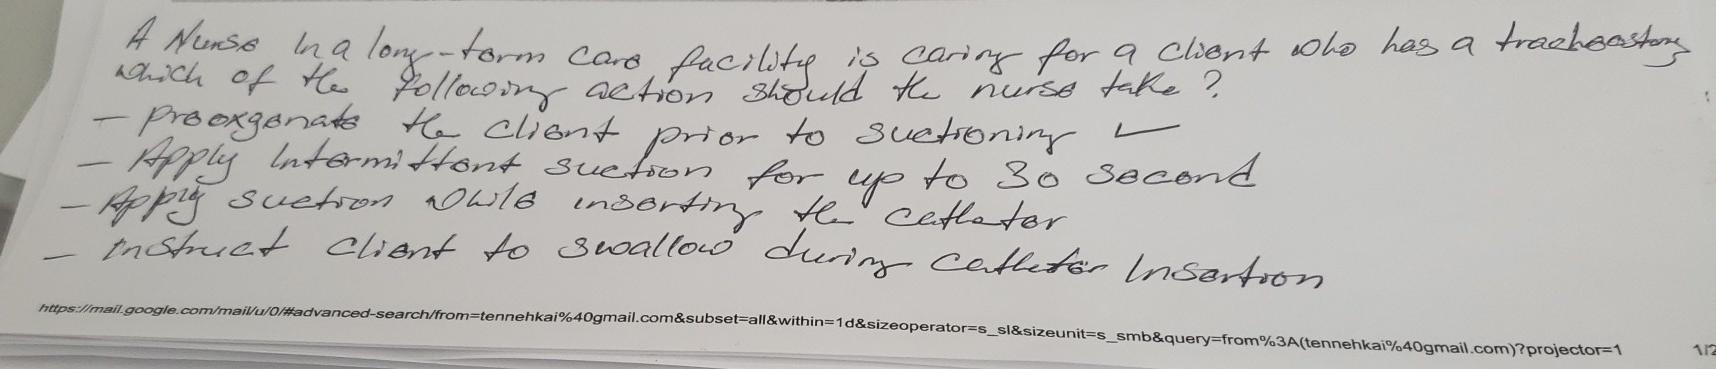 A Nurse In a long-term care facility is caring for a client who has a tracheostomy
which of the following action should the nurse take?
- Preoxgenate the client prior to suctioning ✓
- Apply Intermittent suction for up to 30 second
- Apply suction while inserting the catheter
- Instruct client to swallow during catheter Insertion
https://mail.google.com/mail/u/0/#advanced-search/from=tennehkai%40gmail.com&subset=all&within=1d&sizeoperator=s_sl&sizeunit=s_smb&query=from%3A(tennehkai%40gmail.com)?projector=1 1/2